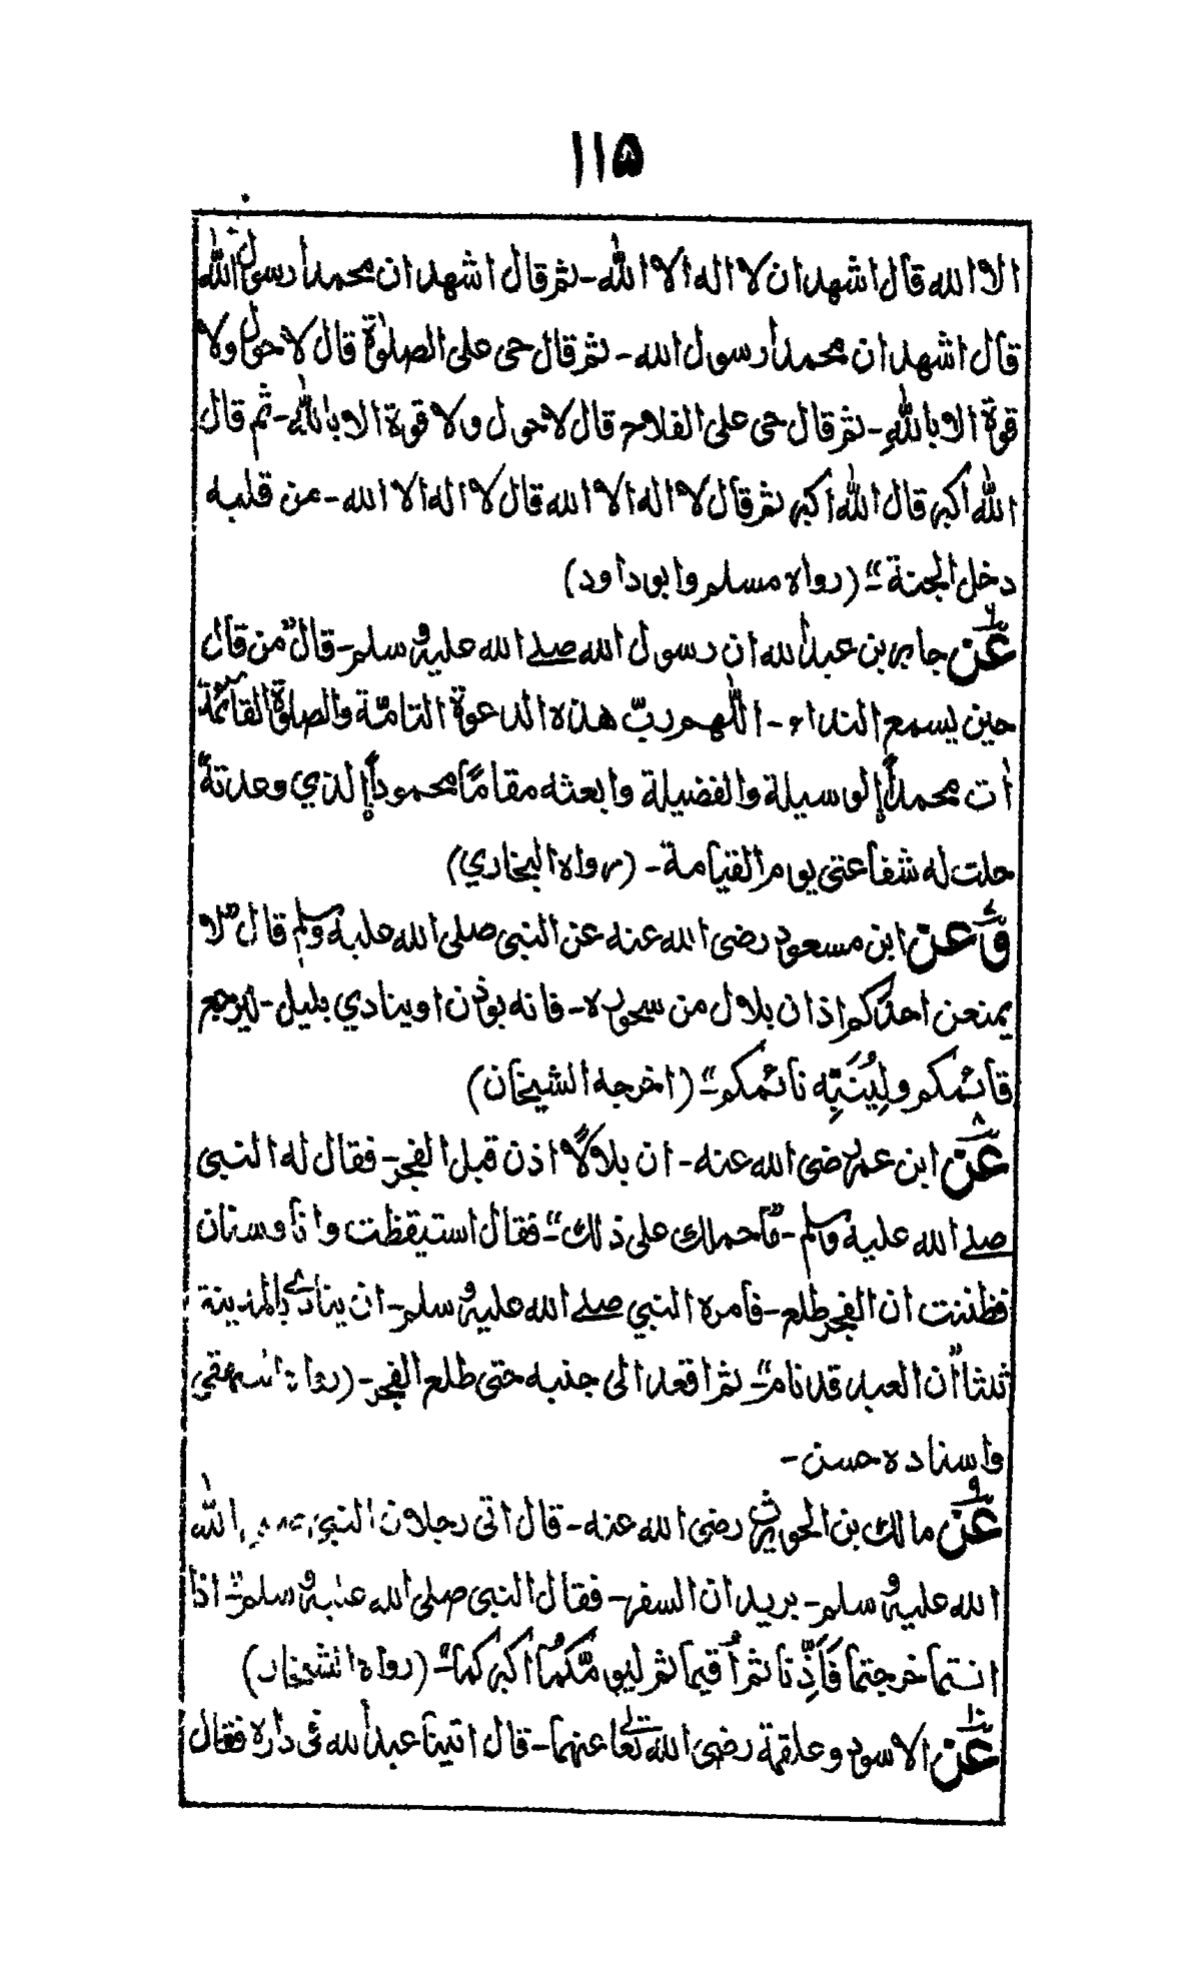 ۱۱۵
الا الله قال اشهد ان لا اله الا اللّٰه - ثم قال اشهد ان محمدا رسول اللّٰه
قال اشهد ان محمدا رسول الله - ثم قال حى على الصلوٰة قال لا حول ولا
قوة الا باللّٰهِ - ثم قال حى على الفلاح قال لا حول ولا قوة الا باللّٰه - ثم قال
اللّٰه اكبر قال اللّٰه اكبر ثم قال لا اله الا الله قال لا اله الا الله - من قلبه
دخل الجنة ‘‘ - (رواه مسلم وابو داود)
عَنْ ۶ جابر بن عبد الله ان رسول الله صلے الله عليه وسلم - قال ’’من قال
حين يسمع النداء - اللّٰهم ربّ هذه الدعوة التامّة والصلوٰة القائمة
اٰت محمداً إلوسيلة والفضيلة وابعثه مقامًا محموداً إلذي وعدته‘‘
حلت له شفاعتى يوم القيامة - (رواه البخاري)
وَعن ۷ ابن مسعود رضى الله عنه عن النبى صلى الله عليه وسلم قال ’’لا
يمنعن احدكم اذان بلال من سحوره - فانه يوذن او ينادي بليل - ليرجع
قائمكم ولِيُنَبِّه نائمكم ‘‘ - (اخرجه الشيخان)
عَنْ ۸ ابن عمر رضى الله عنه - ان بلالاً اذن قبل الفجر - فقال له النبى
صلے الله عليه وسلم - ’’ما حملك على ذلك ‘‘ - فقال استيقظت وانا وسنان
فظننت ان الفجر طلع - فامره النبي صلے الله عليه وسلم - ان ينادے بالمدينة
ثلثا ’’ان العبد قد نام ‘‘ - ثم اقعد الى جنبه حتى طلع الفجر - (رواه البيهقى
واسناده حسن -
عَنْ ۹ مالك بن الحويرث رضى الله عنه - قال اتى رجلان النبى اللّٰه
الله عليه وسلم - يريدان السفر - فقال النبى صلى الله عليه وسلم - ’’اذا
انتما خرجتما فَاَذِّنا ثم اُقيما ثم ليومّكُما اكبركما ‘‘ - (رواه الشيخان)
عَنْ ۱۰ الاسود وعلقمة رضى اللّٰه تعالٰى عنهما - قال اتينا عبد الله فى داره فقال